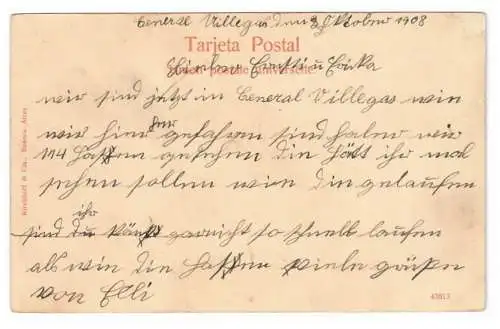 General Villegas den 8 Oktober 1908
Tarjeta Postal
Union postale universelle
u Erika
wir sind jetzt in General Villegas wie
wir hier her gefahren sind haben wir
114 Hasen gesehen die hätt ihr mal
sehen sollen wie die gelaufen
sind ihr könt garnicht so schnell laufen
als wie die Hasen viele grüße
von Elli
Kirchhoff & Cia. Buenos Aires